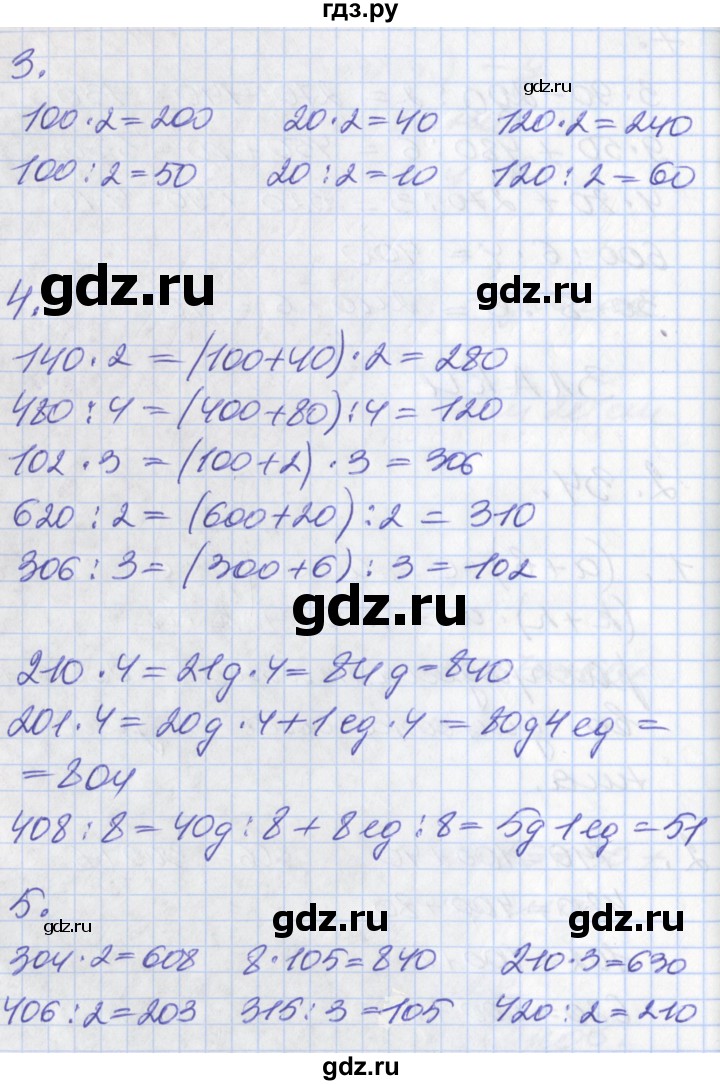 гдз.ру
3.
gdz.ru
100·2=200 20·2=40 120·2=240
100:2=50 20:2=10 120:2=60
gdz.ru
4.
gdz.ru
140·2=(100+40)·2=280
480:4=(400+80):4=120
102·3=(100+2)·3=306
620:2=(600+20):2=310
306:3=(300+6):3=102
gdz.ru
210·4=21д·4=84д=840
201·4=20д·4+1ед·4=80д4ед=
=804
408:8=40д:8+8ед:8=5д1ед=51
5.
gdz.ru gdz.ru gdz.ru
304·2=608 8·105=840 210·3=630
406:2=203 315:3=105 420:2=210
gdz.ru